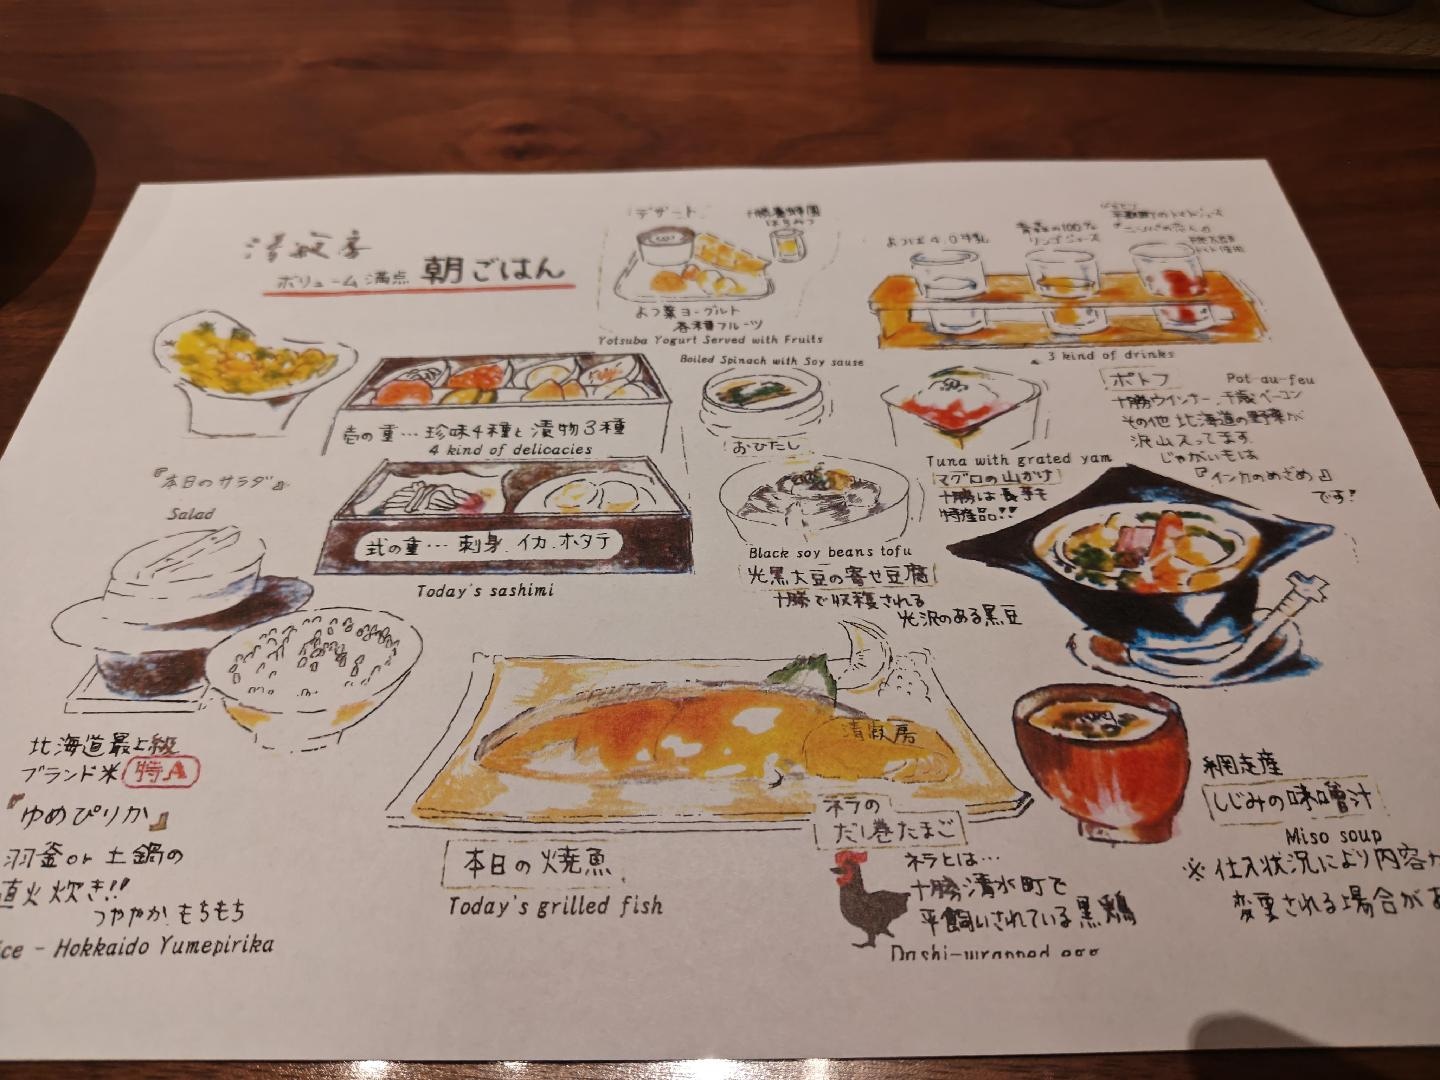 清寂房
ボリューム満点 朝ごはん
デザート
十勝養蜂園
はちみつ
よつ葉ヨーグルト
各種フルーツ
Yotsuba Yogurt Served with Fruits
よつば4.0牛乳
青森の100%
リンゴジュース
3 kind of drinks
壱の重…珍味4種と漬物3種
4 kind of delicacies
弐の重…刺身、イカ、ホタテ
Today's sashimi
『本日のサラダ』
Salad
Boiled Spinach with Soy sause
おひたし
Black soy beans tofu
光黒大豆の寄せ豆腐
十勝で収穫される
光沢のある黒豆
Tuna with grated yam
マグロの山かけ
十勝は長芋も
特産品!!
ポトフ
Pot-au-feu
十勝ウインナー、千歳ベーコン
その他北海道の野菜が
沢山入ってます。
じゃがいもは
『インカのめざめ』
です!
北海道最上級
ブランド米 特A
『ゆめぴりか』
羽釜or土鍋の
直火炊き!!
つややか、もちもち
ice - Hokkaido Yumepirika
清寂房
本日の焼魚
Today's grilled fish
ネラの
だし巻たまご
ネラとは…
十勝清水町で
平飼いされている黒鶏
Dashi-wrapped egg
網走産
しじみの味噌汁
Miso soup
※仕入状況により内容が
変更される場合があ